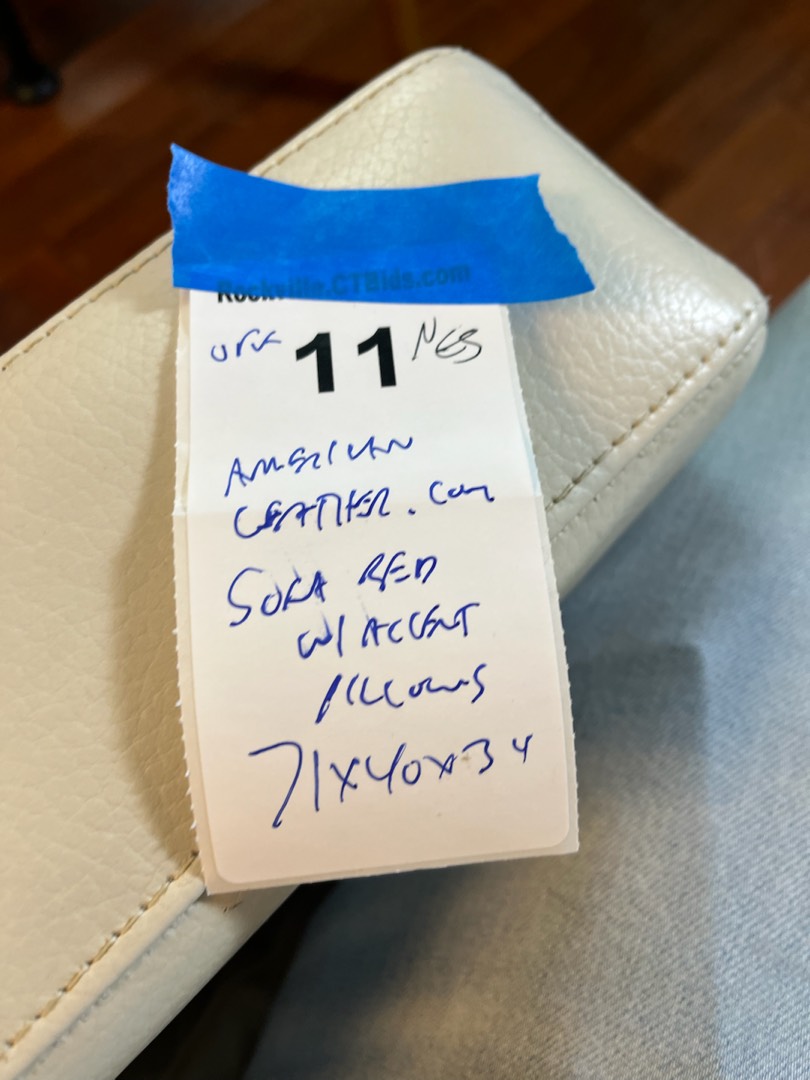 Rockville.CTBids.com
11 NES
AMERICAN
LEATHER.COM
SOFA BED
W/ ACCENT
PILLOWS
71X40X34